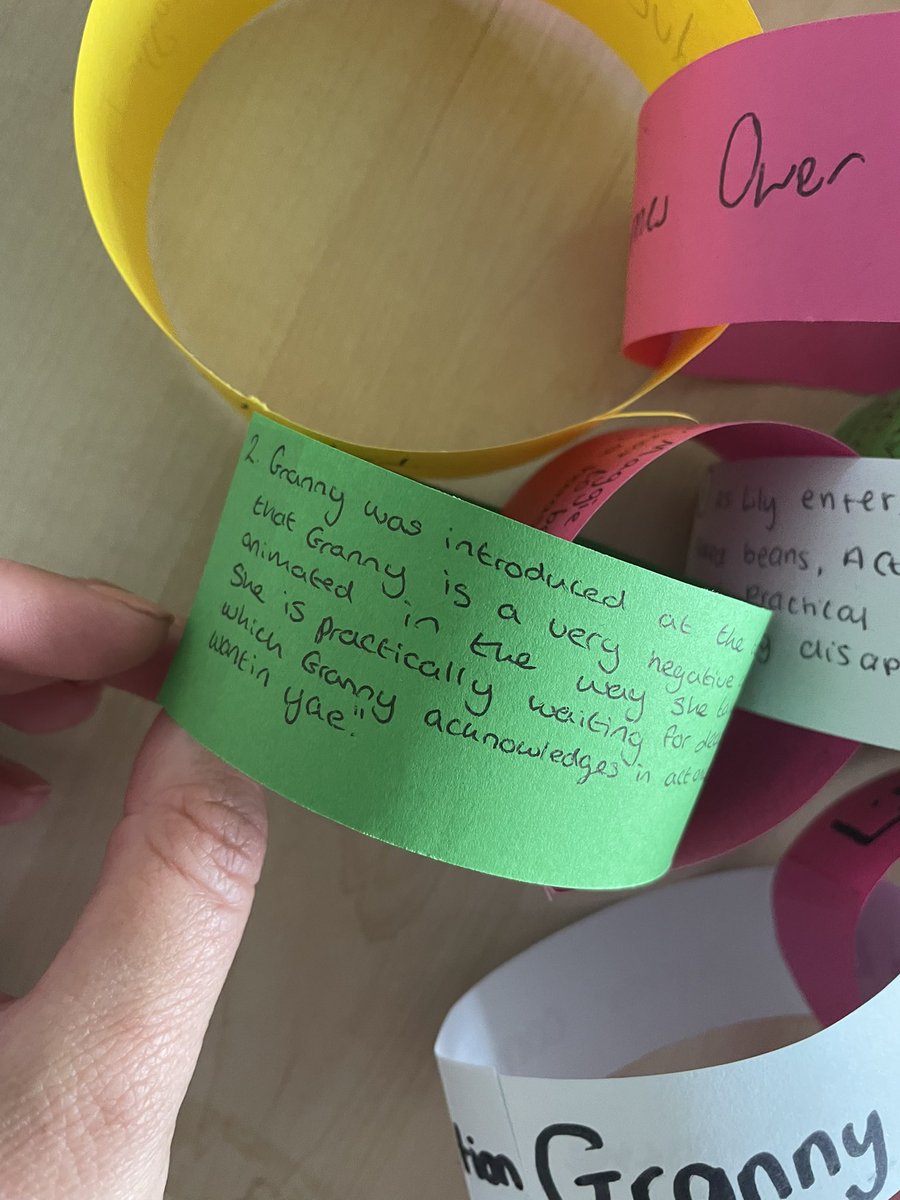 Over
2. Granny was introduced at the
that Granny is a very negative
animated in the way she
She is practically waiting for
which Granny acknowledges "in
wantin yae".
Maggie
as Lily enter
beans, Act
Practical
disap
tion Granny